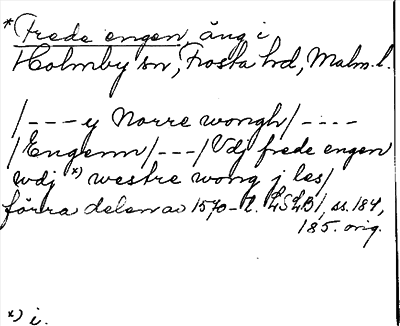 *Frede engen, äng i
Holmby sn, Frosta hd, Malm. l.
/---y Norre wongh/----
/Engenn/---/Vdj frede engen
wdj *) westre wong j les/
förra delen av 1570-t. LSLB/, ss. 184,
185. orig.
*) i.